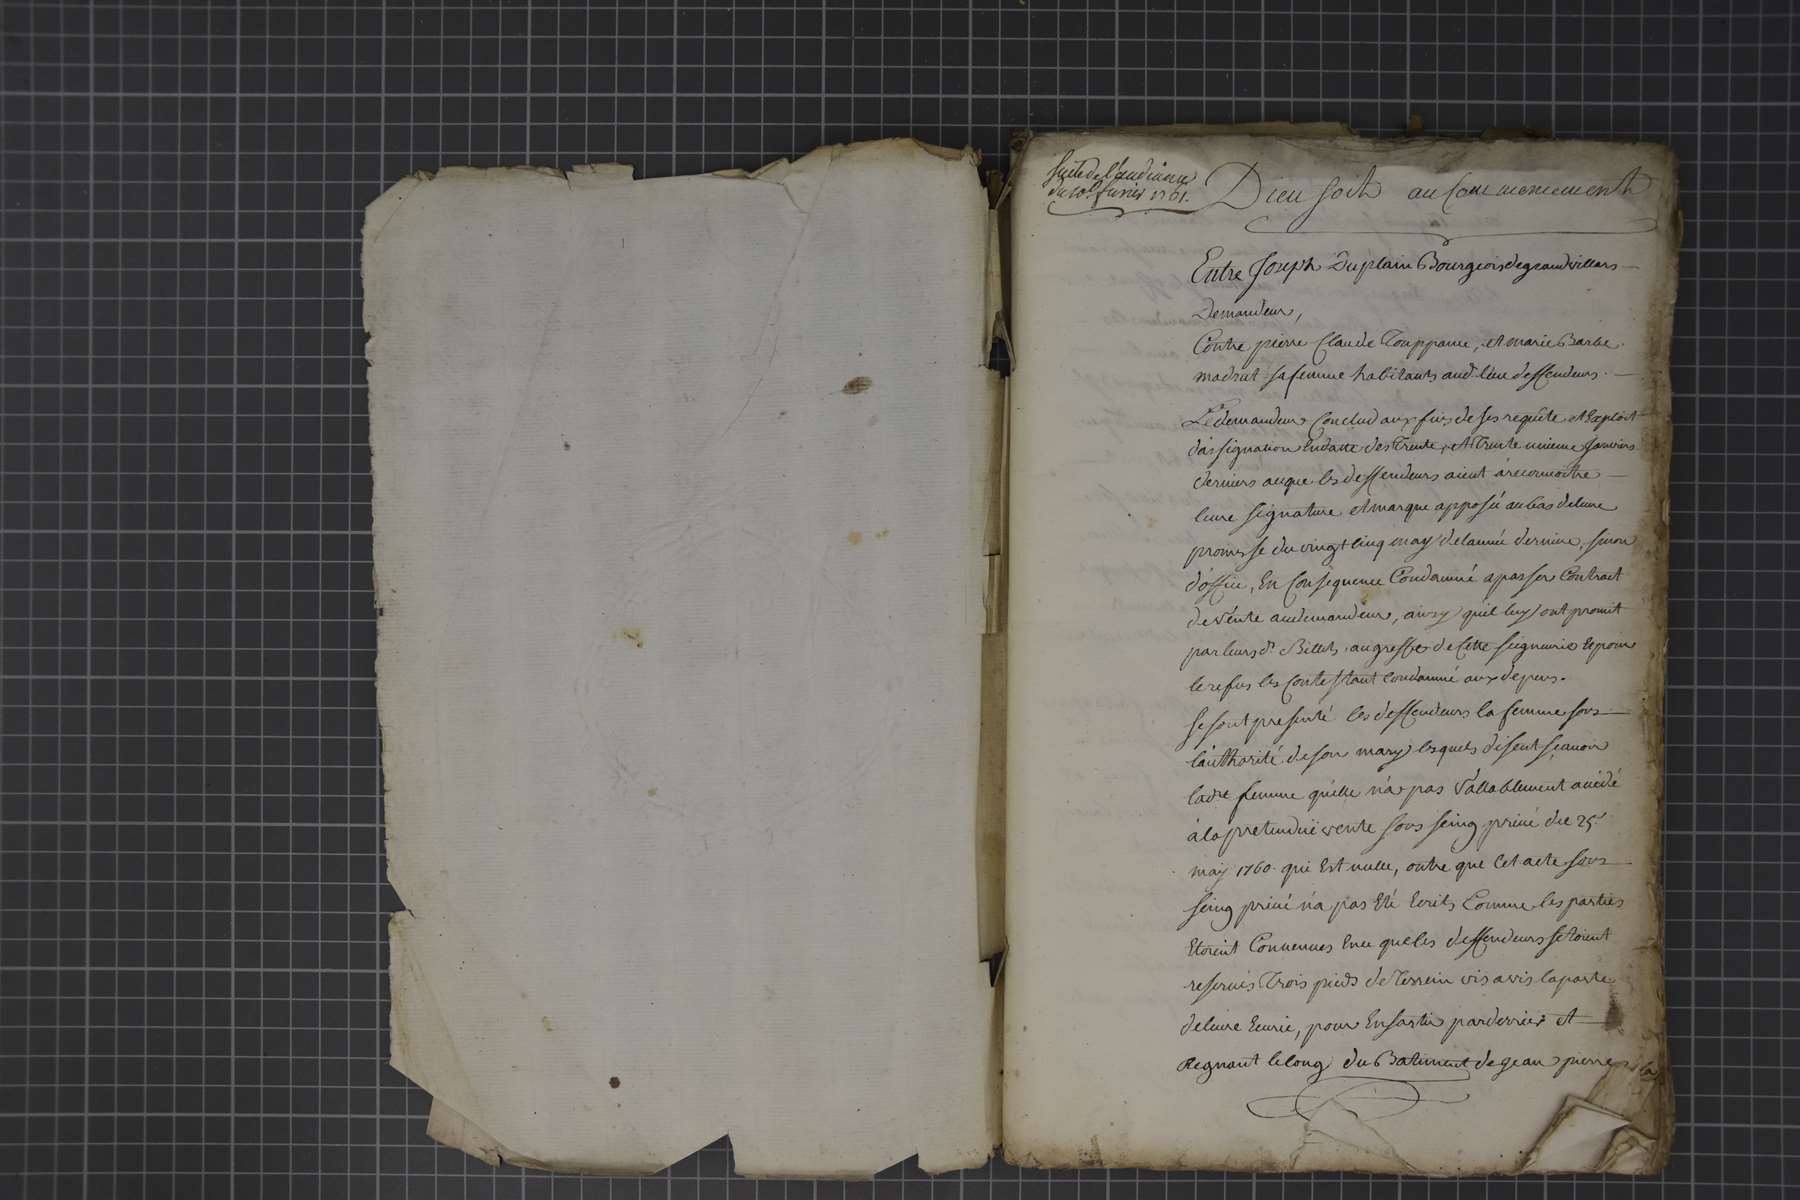 Suite de l'audience
du 10e fevrier 1761.
Dieu soit au Commencement
Entre Joseph Duplain Bourgeois de grandvillars
Demandeur,
Contre pierre Claude Touppane, et marie Barbe
sa femme habitants aud. lieu deffendeurs.
Le demandeur Conclud aux fins de ses requête et Exploit
d'assignation Endatte des Trente, et Trente unieme Janvier
derniers aceque les deffendeurs aient à reconnoitre
leure signature et marque apposée au bas de leure
promesse du vingt cinq may de lannée derniere, sinon
d'office, En Consequence Condamné a passer Contract
de Vente audemandeur, ainsy qu'il luy ont promit
par leurs d. Billets, au greffe de Cette seigneurie Et pour
le refus les Contestant Condamné aux depens.
se sont presenté les deffendeurs la femme sous
l'authorité de son mary lesquels disent scavoir
lade. femme qu'elle n'a pas Vallablement accédé
à la pretenduë vente sous seing privé du 25e
may 1760. qui Est nulle, outre que Cet acte sous
seing privé n'a pas Eté Ecrits Comme les parties
Etoient Convenues Ence que les deffendeurs setoient
reservés Trois pieds de Terrein vis avis la porte
de leure Ecurie, pour En sortir par derrier et
Regnant le long du Batiment de jean pierre